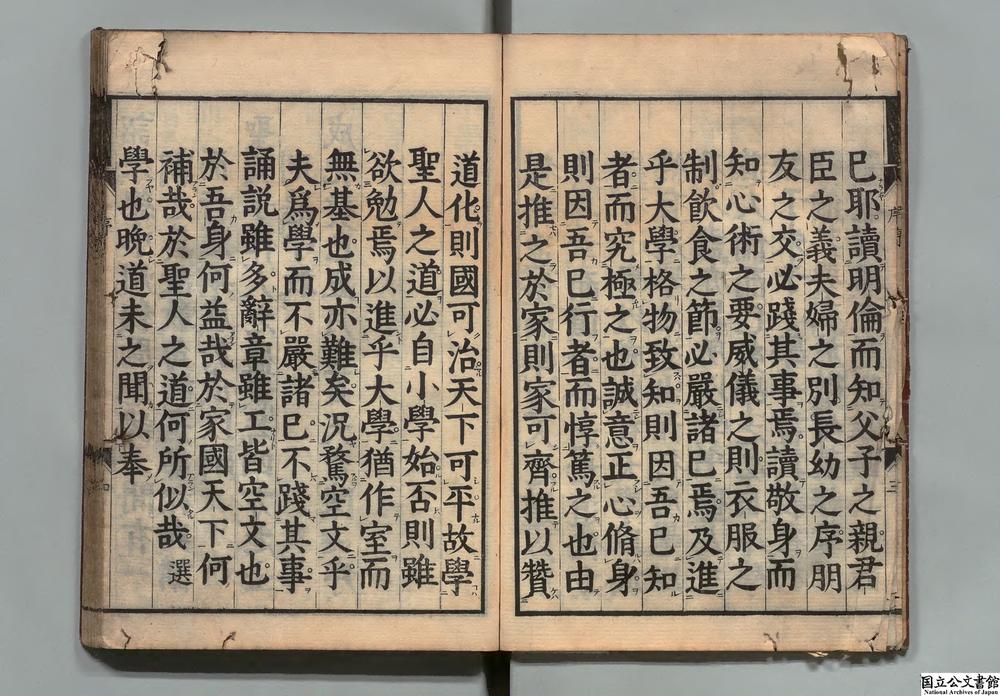 已耶讀明倫而知父子之親君
臣之義夫婦之別長幼之序朋
友之交必踐其事焉讀敬身而
知心術之要威儀之則衣服之
制飲食之節必嚴諸已焉及進
乎大學格物致知則因吾已知
者而究極之也誠意正心脩身
則因吾已行者而惇篤之也由
是推之於家則家可齊推以贊
道化則國可治天下可平故學
聖人之道必自小學始否則雖
欲勉焉以進乎大學猶作室而
無基也成亦難矣況騖空文乎
夫爲學而不嚴諸已不踐其事
誦説雖多辭章雖工皆空文也
於吾身何益哉於家國天下何
補哉於聖人之道何所似哉 選
學也晩道未之聞以奉
国立公文書館
National Archives of Japan